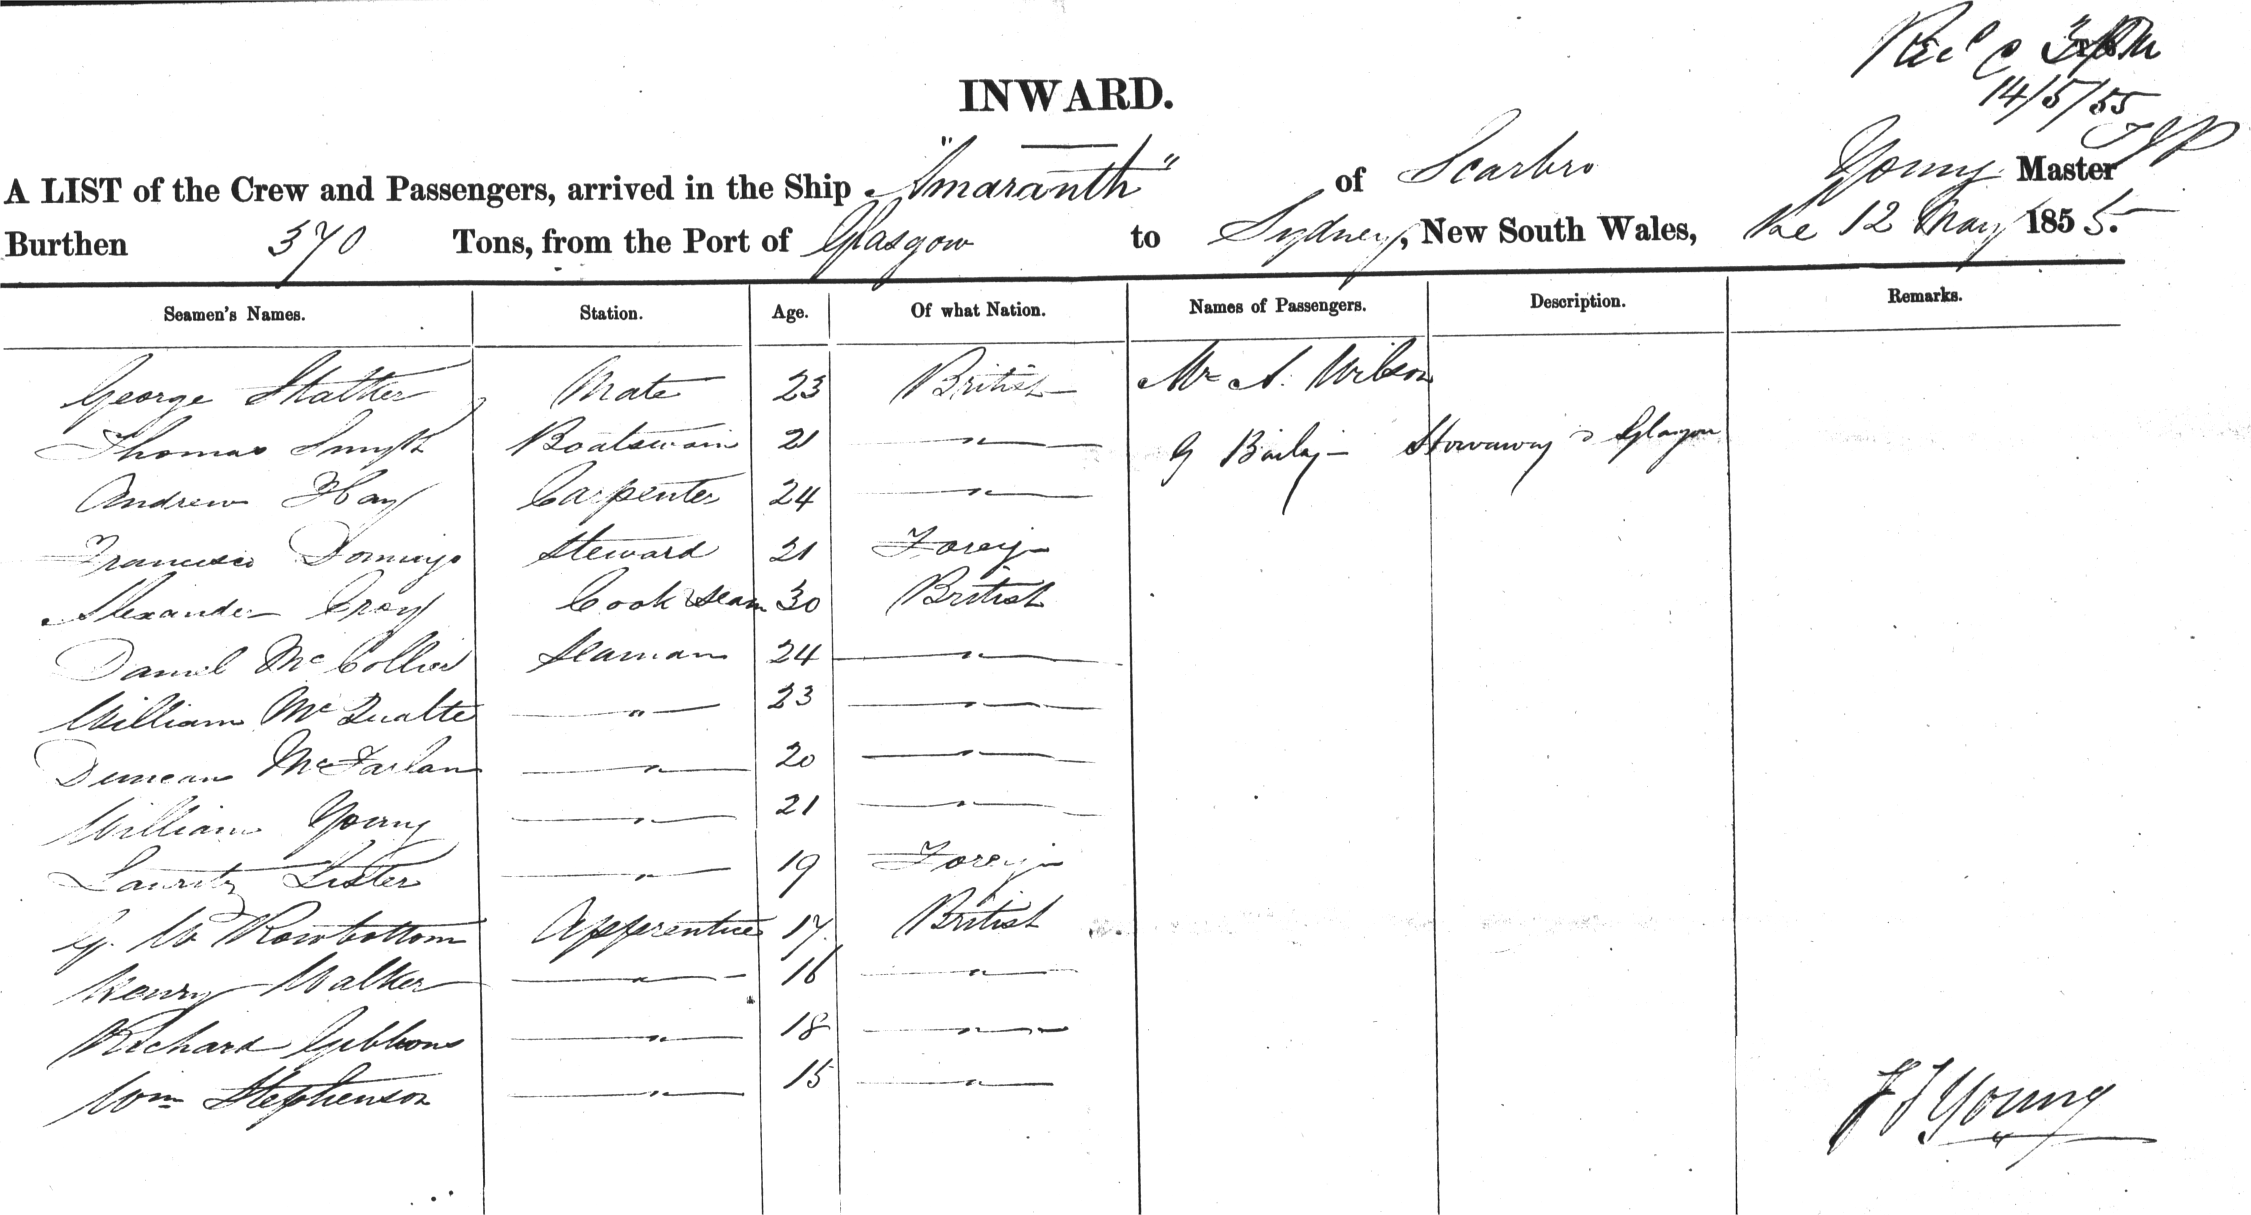 Rec'd
14/5/55
INWARD.
A LIST of the Crew and Passengers, arrived in the Ship "Amaranth" of Scarbro Young Master
Burthen 370 Tons, from the Port of Glasgow to Sydney, New South Wales, the 12 May 1855.
Seamen's Names. Station. Age. Of what Nation. Names of Passengers. Description. Remarks.
George Stather Mate 23 British Mr A. Wilson
Thomas Smyth Boatswain 21 " G Bailey Stowaway Glasgow
Andrew Hay Carpenter 24 "
Francisco Domingo Steward 21 Foreign
Alexander Croy Cook & Seam 30 British
Daniel McCollier Seaman 24 "
William " 23 "
Duncan McFarlan " 20 "
William Young " 21 "
Lauritz Lister " 19 Foreign
G. W Rowbottom Apprentice 17 British
Henry Walker " 16 "
Richard Gibbons " 18 "
Wm Stephenson " 15 "
Young